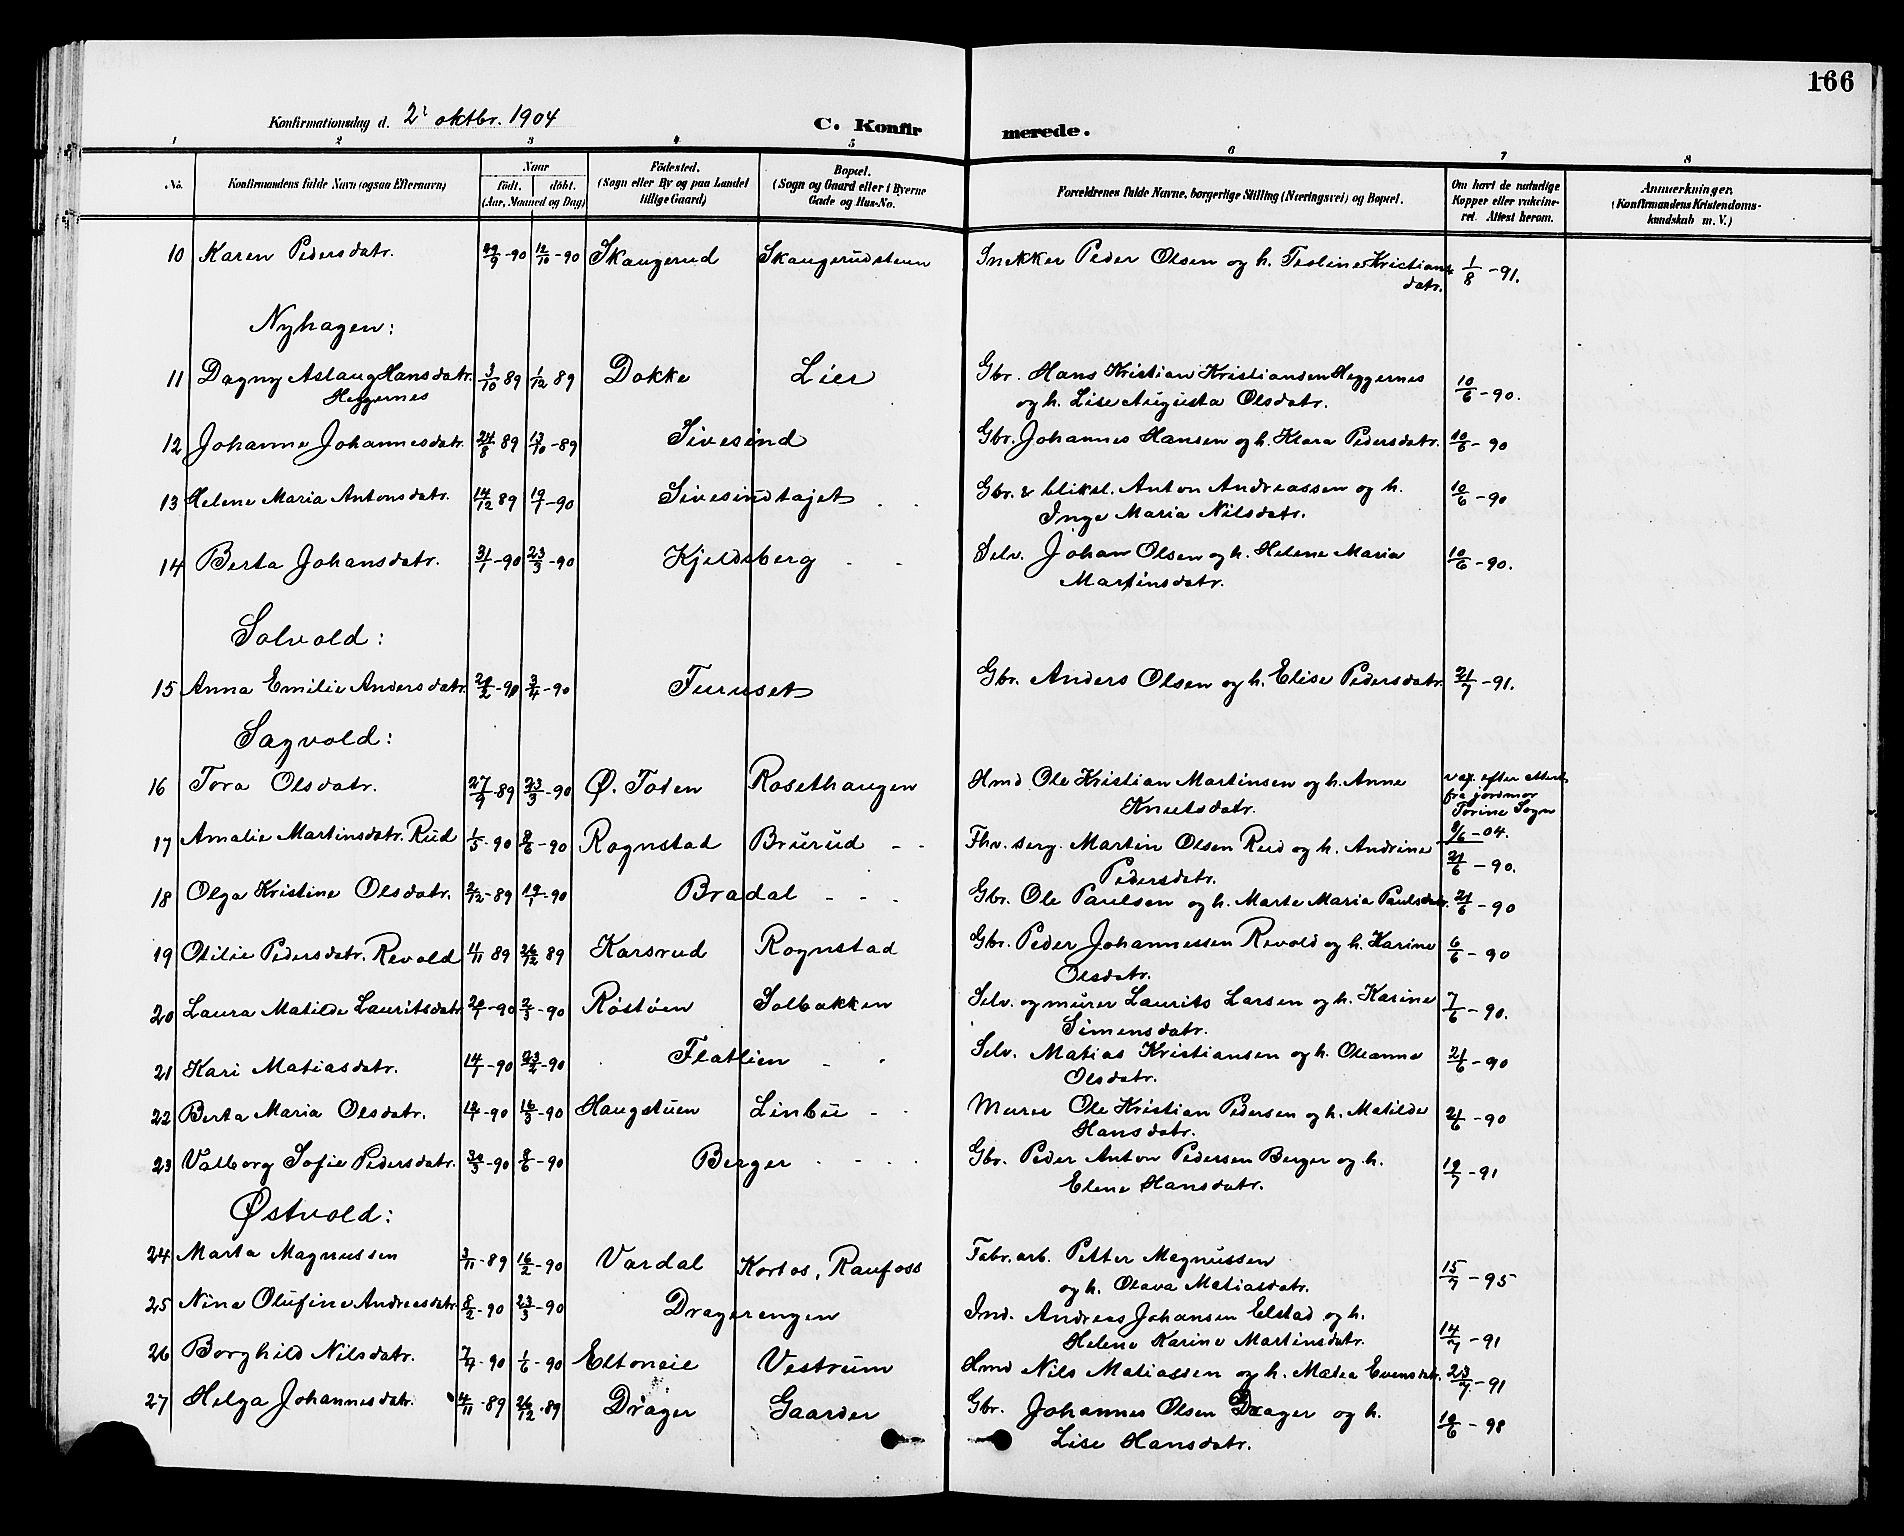 166
Konfirmationsdag d. 2' oktbr. 1904
C. Konfirmerede.
1 2 3 4 5 6 7 8
No. Konfirmandens fulde Navn (ogsaa Efternavn) Naar født. døbt. (Aar, Maaned og Dag) Fødested. (Sogn eller By og paa Landet tillige Gaard) Bopæl. (Sogn og Gaard eller i Byerne Gade og Hus-No. Forældrenes fulde Navne, borgerlige Stilling (Næringsvei) og Bopæl. Om havt de naturlige Kopper eller vakcineret. Attest herom. Anmerkninger. (Konfirmandens Kristendomskundskab m. V.)
10 Karen Pedersdatr. 29/9-90 12/10-90 Skaugerud Skaugerudsteen Snekker Peder Olsen og h. Teoline Kristiansdatr. 1/8-91.
Nyhagen:
11 Dagny Aslaug Hansdatr. Heggernes 3/10 89 1/12 89 Dokke Lier Gbr. Hans Kristian Kristiansen Heggernes
og h. Lise Augusta Olsdatr. 10/6-90.
12 Johanne Johannesdatr. 24/8 89 13/10-89 Sivesind Gbr. Johannes Hansen og h. Klara Pedersdatr. 10/6-90
13 Helene Maria Antonsdatr. 14/12 89 19/1-90 Sivesindhajet Gbr. & bliksl. Anton Andreassen og h.
Inge Maria Nilsdatr. 10/6-90
14 Berta Johansdatr. 31/1-90 23/3-90 Kjeldsberg Selv. Johan Olsen og h. Helene Maria
Martinsdatr. 10/6-90.
Solvold:
15 Anna Emilie Andersdatr. 20/2-90 3/4-90 Furuset Gbr. Anders Olsen og h. Elise Pedersdatr. 21/7-91.
Sagvold:
16 Tora Olsdatr. 27/9-89 23/3-90 Ø. Toten Rosethaugen Hmd Ole Kristian Martinsen og h. Anne
Knutsdatr. vax. efter attest fra jordmor Torine Sogn 8/6-04.
17 Amalie Martinsdatr. Rud 1/5-90 8/6-90 Rognstad Brurud Fhv. serg. Martin Olsen Rud og h. Andrine
Pedersdatr. 21/6-90.
18 Olga Kristine Olsdatr. 2/12-89 19/1-90 Bradal Gbr. Ole Paulsen og h. Marte Maria Paulsdatr. 21/6-90
19 Otilie Pedersdatr. Revold 4/11 89 26/12 89 Karsrud Rognstad Gbr. Peder Johannessen Revold og h. Karine
Olsdatr. 6/6-90
20 Laura Matilde Lauritsdatr. 20/1-90 2/3-90 Røstøen Solbakken Selv. og murer Laurits Larsen og h. Karine
Simensdatr. 7/6-90.
21 Kari Matiasdatr. 14/1-90 23/2-90 Flatlien Selv. Matias Kristiansen og h. Oleanne
Olsdatr. 21/6-90
22 Berta Maria Olsdatr. 12/1-90 16/3-90 Haugstuen Linbue Murer Ole Kristian Pedersen og h. Matilde
Hansdatr. 21/6-90
23 Valborg Sofie Pedersdatr. 30/3-90 8/6-90 Berger Gbr. Peder Anton Pedersen Berger og h.
Elene Hansdatr. 19/7-91
Østvold:
24 Marta Magnussen 3/11-89 16/2-90 Vardal Kortos, Raufoss Fabr. arb. Petter Magnussen
og h. Olava Matiasdatr. 15/7-95
25 Nina Olufine Andreasdatr. 8/2-90 23/3-90 Dragerengen Ind. Andreas Johansen Elstad og h.
Helene Karine Martinsdatr. 14/7-91
26 Borghild Nilsdatr. 7/4-90 1/6-90 Eltoneie Vestrum Hmd Nils Matiassen og h. Matea Evensdatr. 23/7-91
27 Helga Johannesdatr. 4/11-89 26/12-89 Drager Gaarder Gbr. Johannes Olsen Drager og h.
Lise Hansdatr. 10/6-98